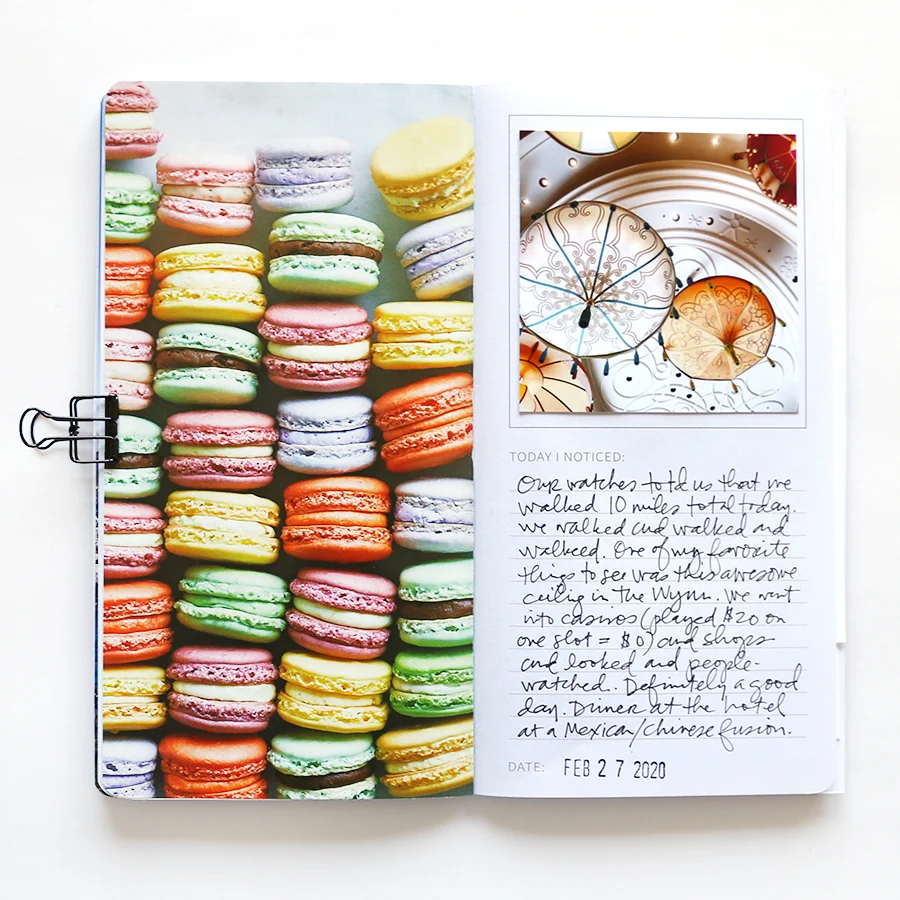 TODAY I NOTICED:
Our watches told us that we
walked 10 miles total today.
we walked and walked and
walkeed. One of my favorite
things to see was this awesome
ceiling in the Wynn. We went
into casinos (played $20 on
one slot = $0) and shops
and looked and people-
watched. Definitely a good
day. Dinner at the hotel
at a Mexican/Chinese fusion.
DATE: FEB 27 2020